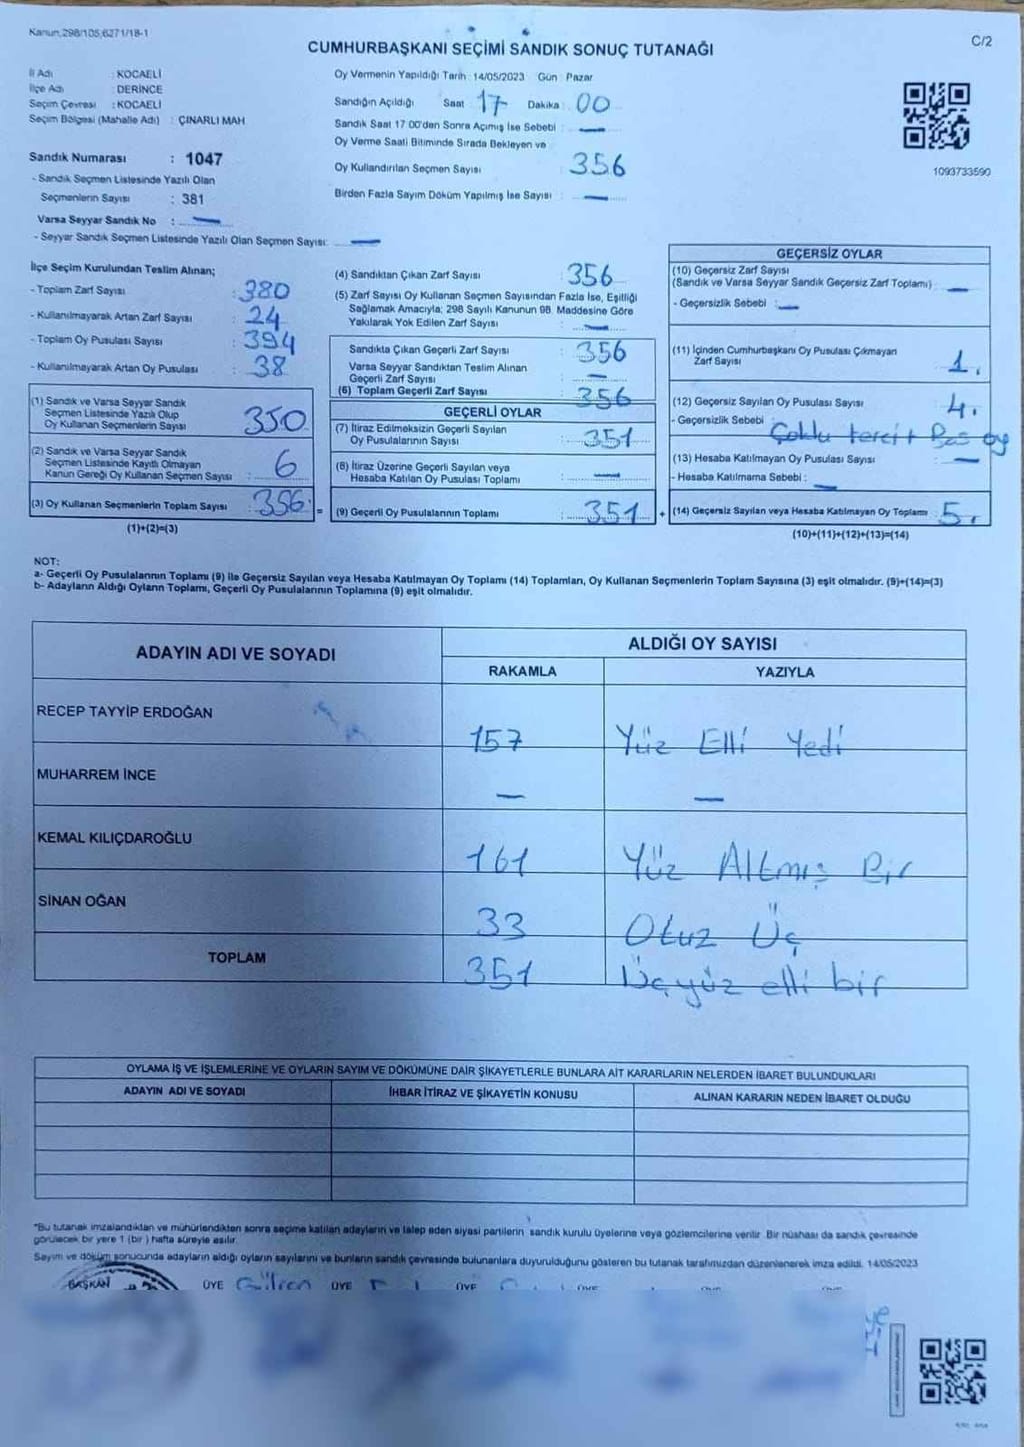 Kanun,298/105,6271/18-1
C/2
CUMHURBAŞKANI SEÇİMİ SANDIK SONUÇ TUTANAĞI
İl Adı : KOCAELİ
İlçe Adı : DERİNCE
Seçim Çevresi : KOCAELİ
Seçim Bölgesi (Mahalle Adı) : ÇINARLI MAH
Sandık Numarası : 1047
- Sandık Seçmen Listesinde Yazılı Olan
Seçmenlerin Sayısı : 381
Varsa Seyyar Sandık No : —
- Seyyar Sandık Seçmen Listesinde Yazılı Olan Seçmen Sayısı: —
Oy Vermenin Yapıldığı Tarih : 14/05/2023 Gün : Pazar
Sandığın Açıldığı Saat 17 Dakika : 00
Sandık Saat 17 00'den Sonra Açımış İse Sebebi : —
Oy Verme Saati Bitiminde Sırada Bekleyen ve
Oy Kullandırılan Seçmen Sayısı : 356
Birden Fazla Sayım Döküm Yapılmış İse Sayısı : —
1093733590
İlçe Seçim Kurulundan Teslim Alınan;
- Toplam Zarf Sayısı : 380
- Kullanılmayarak Artan Zarf Sayısı : 24
- Toplam Oy Pusulası Sayısı : 394
- Kullanılmayarak Artan Oy Pusulası : 38
(1) Sandık ve Varsa Seyyar Sandık
Seçmen Listesinde Yazılı Olup
Oy Kullanan Seçmenlerin Sayısı 350
(2) Sandık ve Varsa Seyyar Sandık
Seçmen Listesinde Kayıtlı Olmayan
Kanun Gereği Oy Kullanan Seçmen Sayısı : 6
(3) Oy Kullanan Seçmenlerin Toplam Sayısı : 356 =
(1)+(2)=(3)
(4) Sandıktan Çıkan Zarf Sayısı : 356
(5) Zarf Sayısı Oy Kullanan Seçmen Sayısından Fazla İse, Eşitliği
Sağlamak Amacıyla; 298 Sayılı Kanunun 98. Maddesine Göre
Yakılarak Yok Edilen Zarf Sayısı : —
Sandıkta Çıkan Geçerli Zarf Sayısı : 356
Varsa Seyyar Sandıktan Teslim Alınan
Geçerli Zarf Sayısı : —
(6) Toplam Geçerli Zarf Sayısı : 356
GEÇERLİ OYLAR
(7) İtiraz Edilmeksizin Geçerli Sayılan
Oy Pusulalarının Sayısı : 351
(8) İtiraz Üzerine Geçerli Sayılan veya
Hesaba Katılan Oy Pusulası Toplamı : —
(9) Geçerli Oy Pusulalarının Toplamı : 351 +
GEÇERSİZ OYLAR
(10) Geçersiz Zarf Sayısı
(Sandık ve Varsa Seyyar Sandık Geçersiz Zarf Toplamı) : —
- Geçersizlik Sebebi : —
(11) İçinden Cumhurbaşkanı Oy Pusulası Çıkmayan
Zarf Sayısı : 1.
(12) Geçersiz Sayılan Oy Pusulası Sayısı : 4.
- Geçersizlik Sebebi : Çoklu tercit Boş oy
(13) Hesaba Katılmayan Oy Pusulası Sayısı : —
- Hesaba Katılmama Sebebi : —
(14) Geçersiz Sayılan veya Hesaba Katılmayan Oy Toplamı : 5.
(10)+(11)+(12)+(13)=(14)
NOT:
a- Geçerli Oy Pusulalarının Toplamı (9) ile Geçersiz Sayılan veya Hesaba Katılmayan Oy Toplamı (14) Toplamları, Oy Kullanan Seçmenlerin Toplam Sayısına (3) eşit olmalıdır. (9)+(14)=(3)
b- Adayların Aldığı Oyların Toplamı, Geçerli Oy Pusulalarının Toplamına (9) eşit olmalıdır.
ADAYIN ADI VE SOYADI
ALDIĞI OY SAYISI
RAKAMLA YAZIYLA
RECEP TAYYİP ERDOĞAN 157 Yüz Elli Yedi
MUHARREM İNCE — —
KEMAL KILIÇDAROĞLU 161 Yüz Altmış Bir
SİNAN OĞAN 33 Otuz Üç
TOPLAM 351 Üçyüz elli bir
OYLAMA İŞ VE İŞLEMLERİNE VE OYLARIN SAYIM VE DÖKÜMÜNE DAİR ŞİKAYETLERLE BUNLARA AİT KARARLARIN NELERDEN İBARET BULUNDUKLARI
ADAYIN ADI VE SOYADI İHBAR İTİRAZ VE ŞİKAYETİN KONUSU ALINAN KARARIN NEDEN İBARET OLDUĞU
*Bu tutanak imzalandıktan ve mühürlendikten sonra seçime katılan adayların ve talep eden siyasi partilerin sandık kurulu üyelerine veya gözlemcilerine verilir. Bir nüshası da sandık çevresinde
görülecek bir yere 1 (bir ) hafta süreyle asılır.
Sayım ve döküm sonucunda adayların aldığı oyların sayılarını ve bunların sandık çevresinde bulunanlara duyurulduğunu gösteren bu tutanak tarafımızdan düzenlenerek imza edildi. 14/05/2023
BAŞKAN ÜYE Gülren ÜYE ÜYE